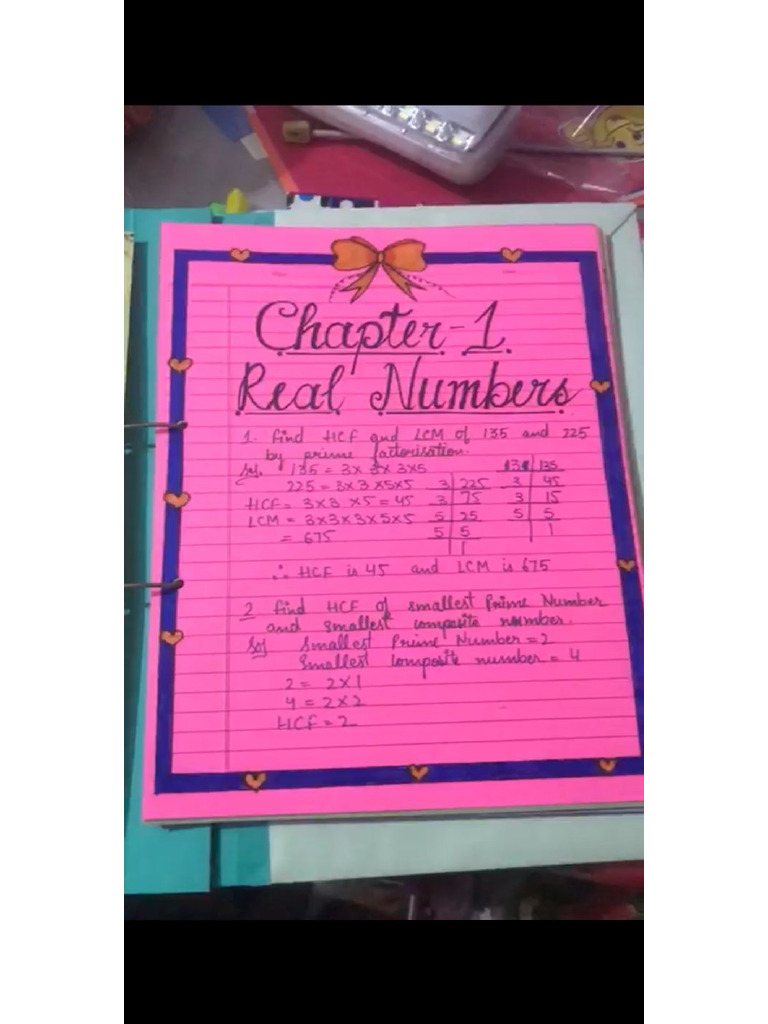 Chapter-1
Real Numbers
1. find HCF and LCM of 135 and 225
by prime factorisation.
Sol. 135 = 3x 3x 3x5
225 = 3x3 x5x5
HCF = 3x3 x5 = 45
LCM = 3x3x3x5x5
= 675
3 225
3 75
5 25
5 5
1
3 135
3 45
3 15
5 5
1
∴ HCF is 45 and LCM is 675
2 find HCF of smallest Prime Number
and smallest composite number.
Sol Smallest Prime Number = 2
Smallest composite number = 4
2 = 2x1
4 = 2x2
HCF = 2